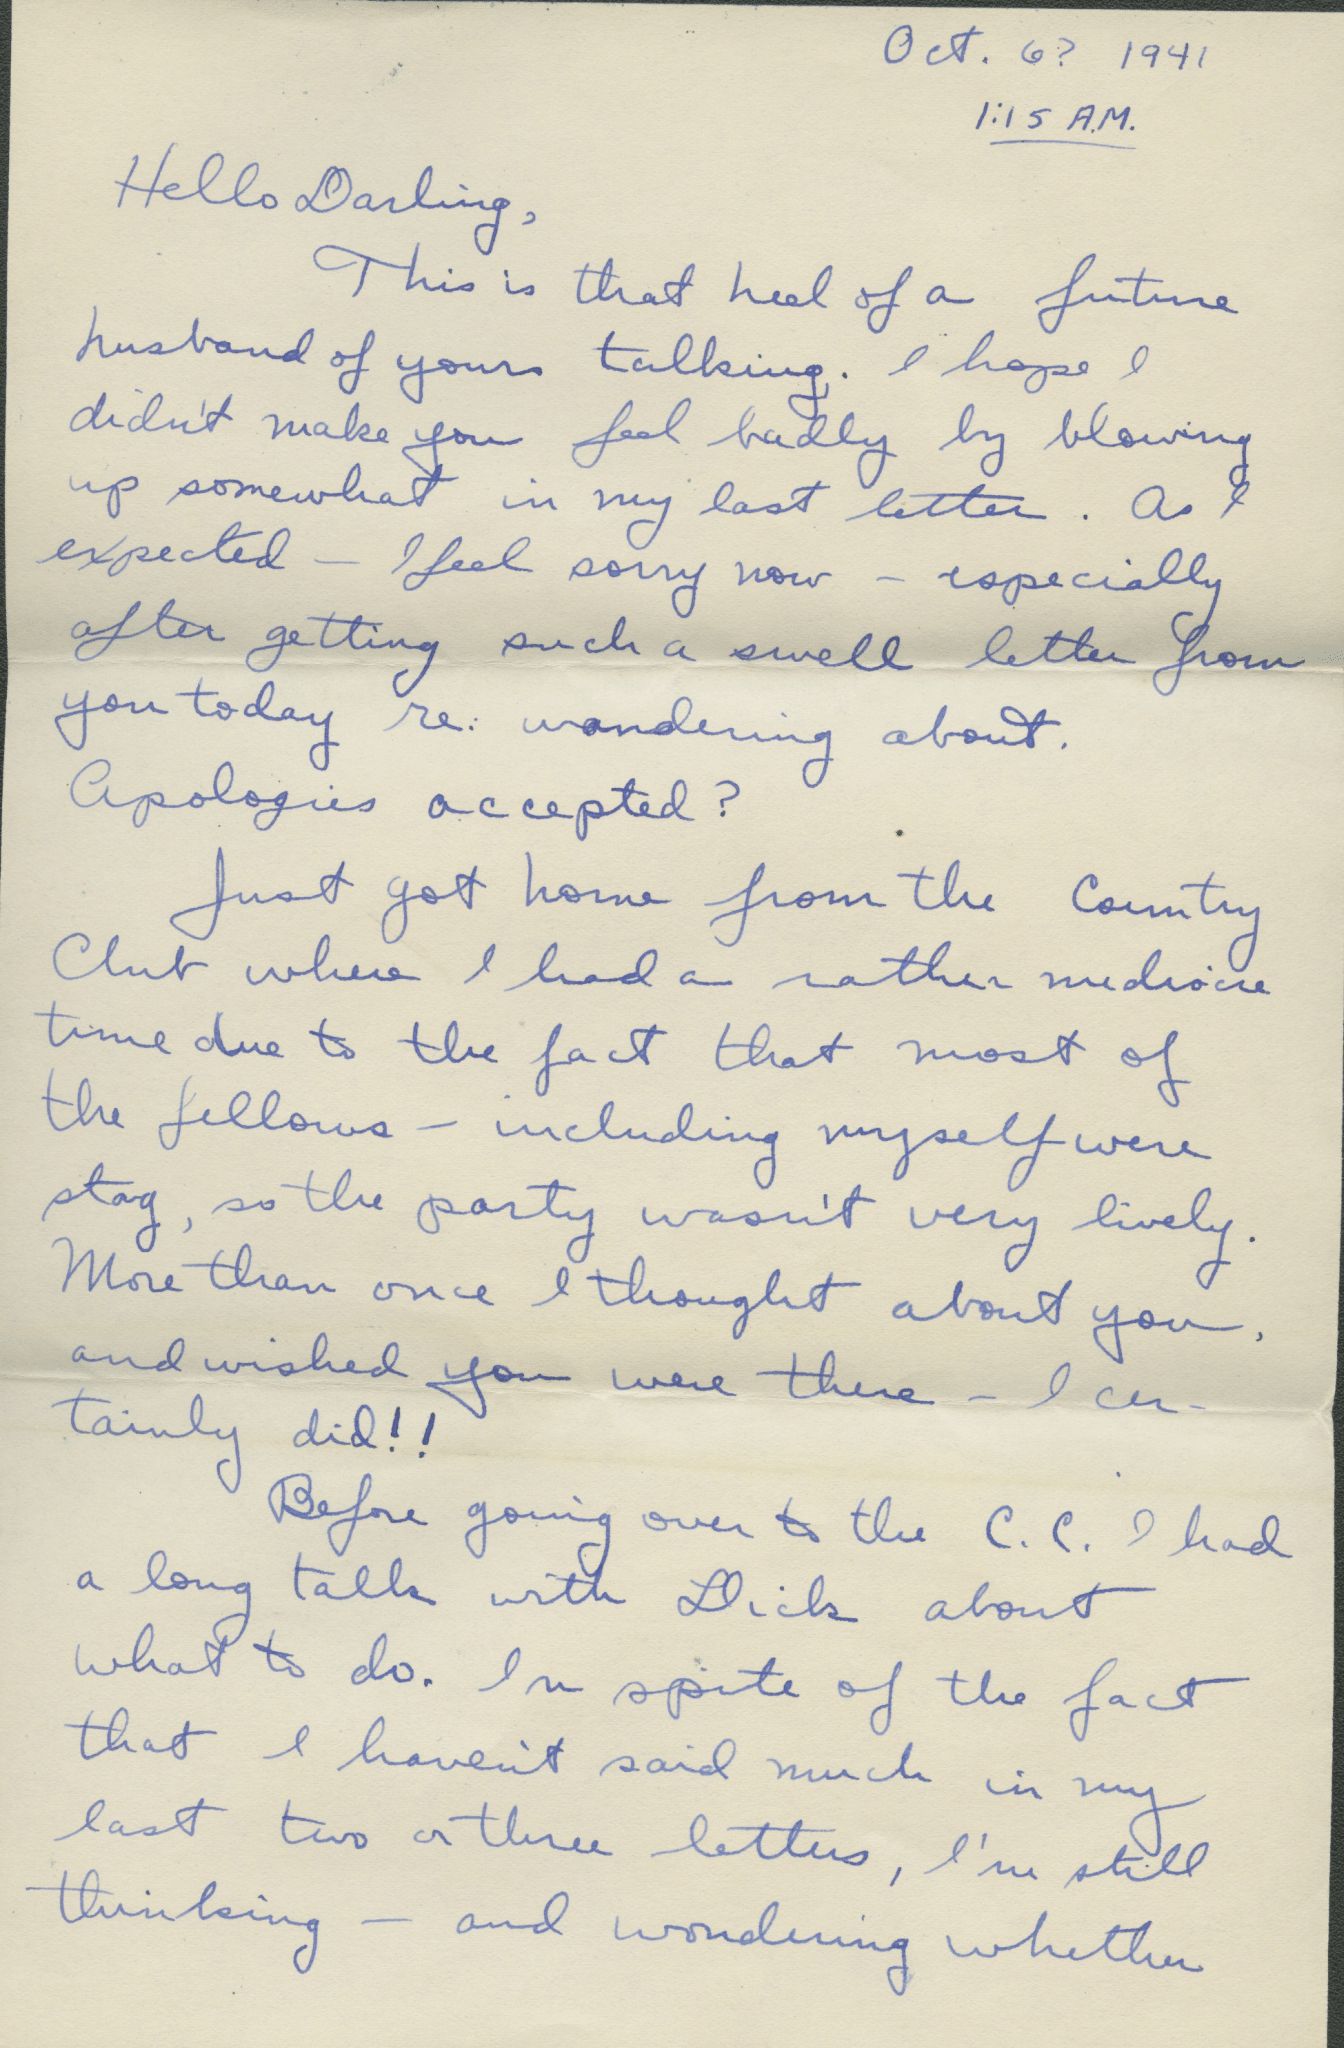 Oct. 6? 1941
1:15 A.M.
Hello Darling,
This is that heel of a future
husband of yours talking. I hope I
didn't make you feel badly by blowing
up somewhat in my last letter. As I
expected – I feel sorry now – especially
after getting such a swell letter from
you today re: wandering about.
Apologies accepted?
Just got home from the Country
Club where I had a rather mediocre
time due to the fact that most of
the fellows – including myself were
stag, so the party wasn't very lively.
More than once I thought about you,
and wished you were there – I cer-
tainly did!!
Before going over to the C.C. I had
a long talk with Dick about
what to do. In spite of the fact
that I haven't said much in my
last two or three letters, I'm still
thinking – and wondering whether